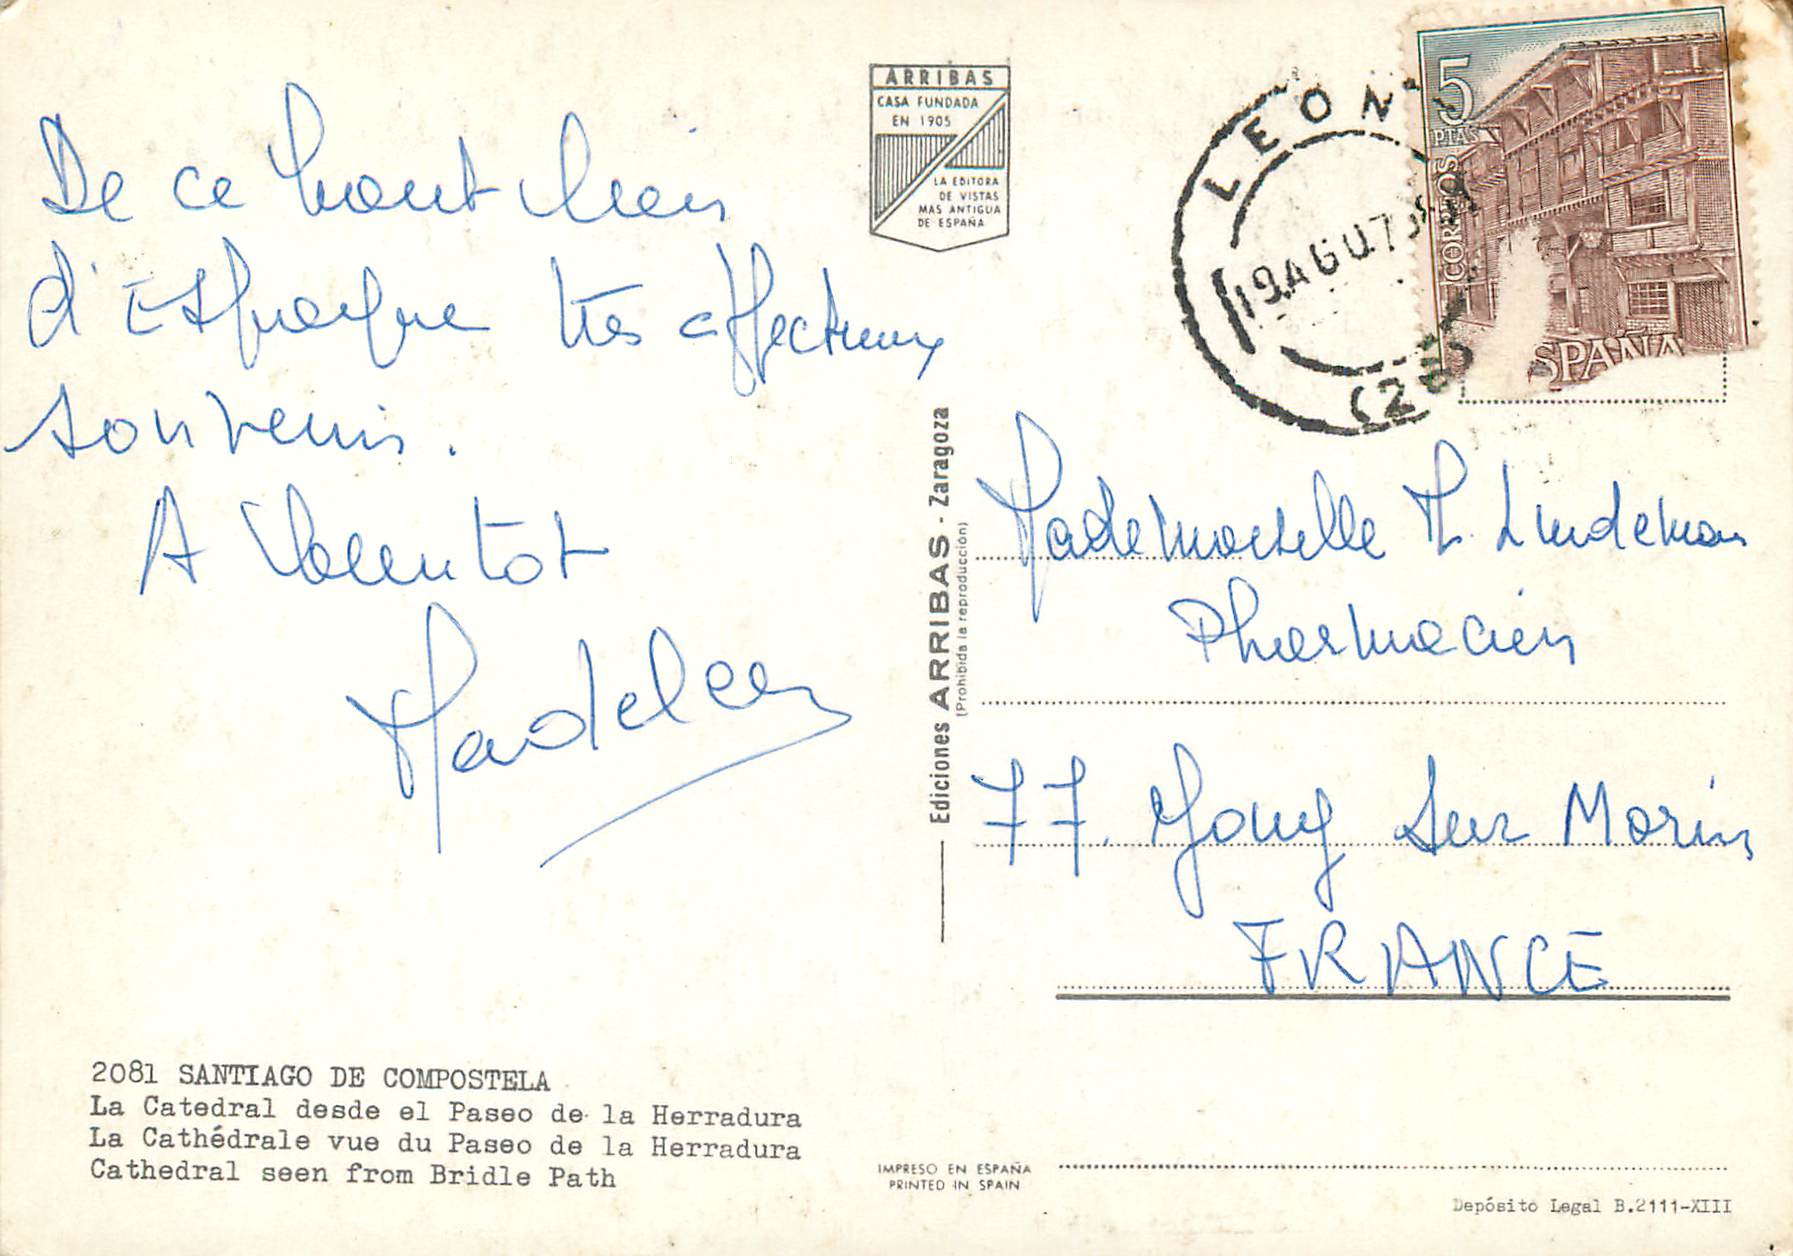 De ce haut lieu
d'Espagne très affectueux
souvenir.
A bientot
Madeleen
ARRIBAS
CASA FUNDADA
EN 1905
LA EDITORA
DE VISTAS
MAS ANTIGUA
DE ESPAÑA
LEON
19 AGU.7
5
PTAS
CORREOS
ESPAÑA
Ediciones ARRIBAS - Zaragoza
(Prohibida la reproducción)
Mademoiselle M. Lindeman
Pharmacien
77. Jouy Sur Morin
FRANCE
2081 SANTIAGO DE COMPOSTELA
La Catedral desde el Paseo de la Herradura
La Cathédrale vue du Paseo de la Herradura
Cathedral seen from Bridle Path
IMPRESO EN ESPAÑA
PRINTED IN SPAIN
Depósito Legal B.2111-XIII